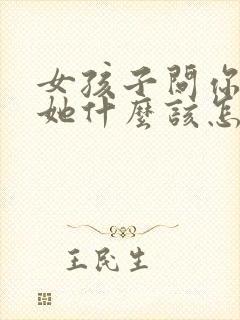 女孩子問你
她什麼該怎
王民生